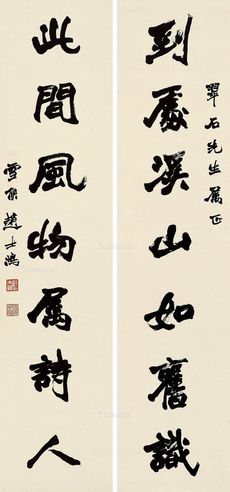 翠石先生属正
到處溪山如舊識
此間風物属詩人
雪侯趙士鴻